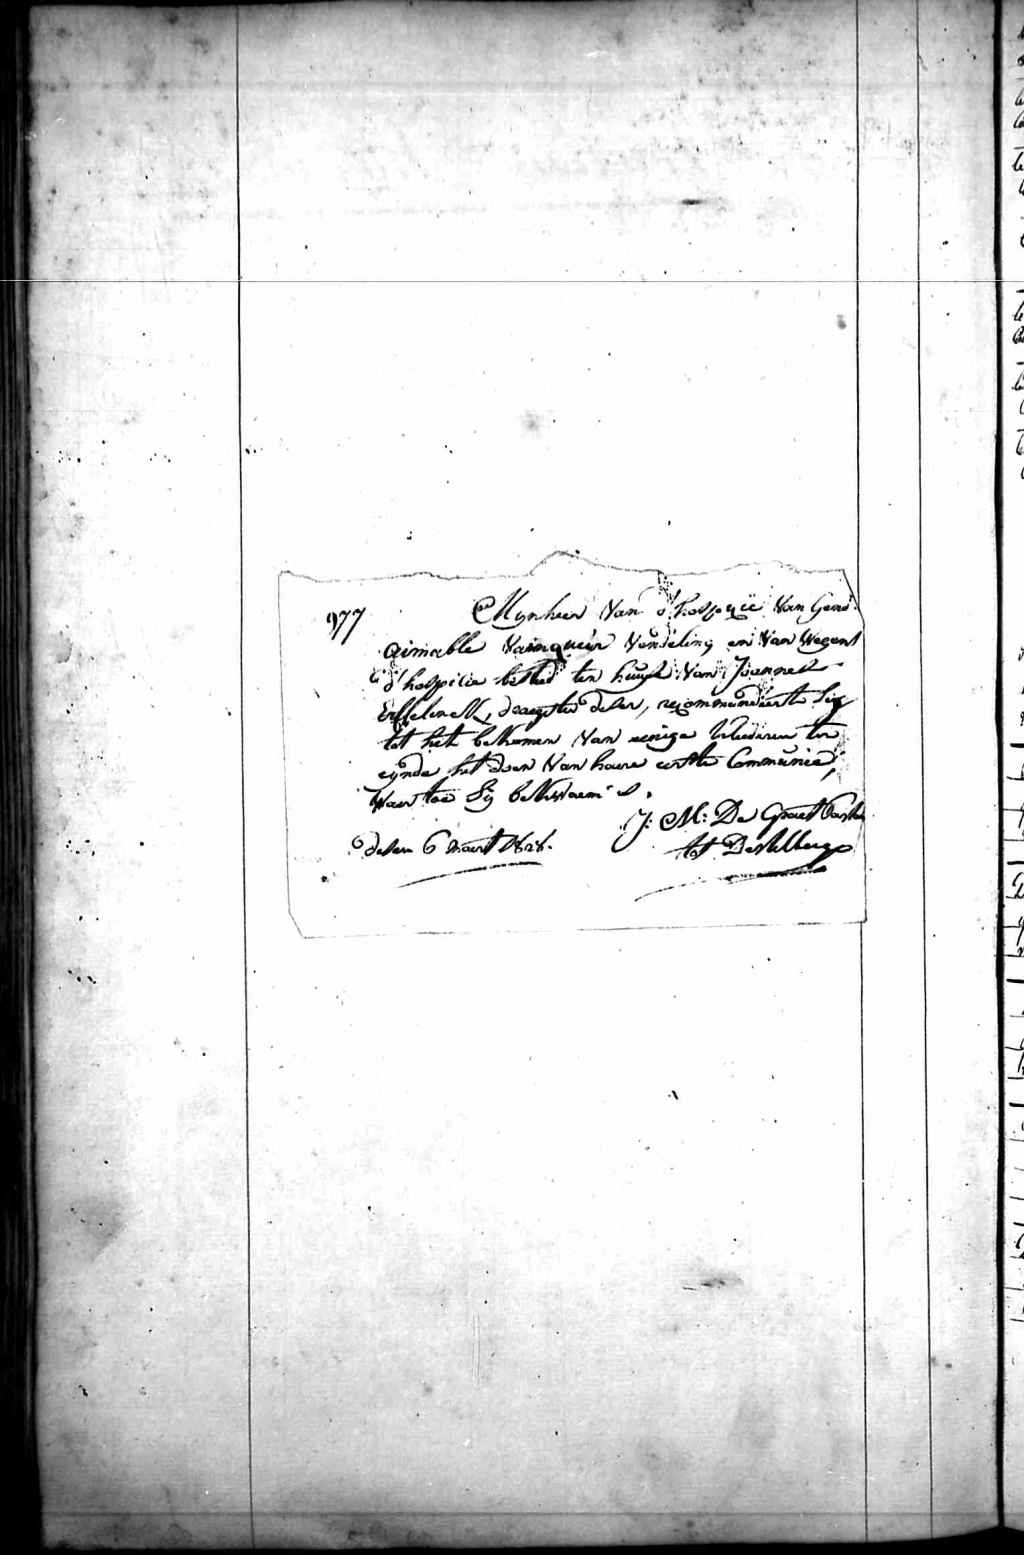 977 Mynheer Van d'hospicië Van Gend.
aimable Vainqueur Vondeling en Van Wegens
d'hospicie besteed ten huyse Van Joannes
Effelinck, draegster deser, recommandeerte sig
tot het bekomen Van eenige kleederen ten
eynde het doen Van haere eerste Communie,
Waer toe Sy bekwaem is.
J: M: De Graet Pastor
desen 6 maert 1828. tot Destelberge